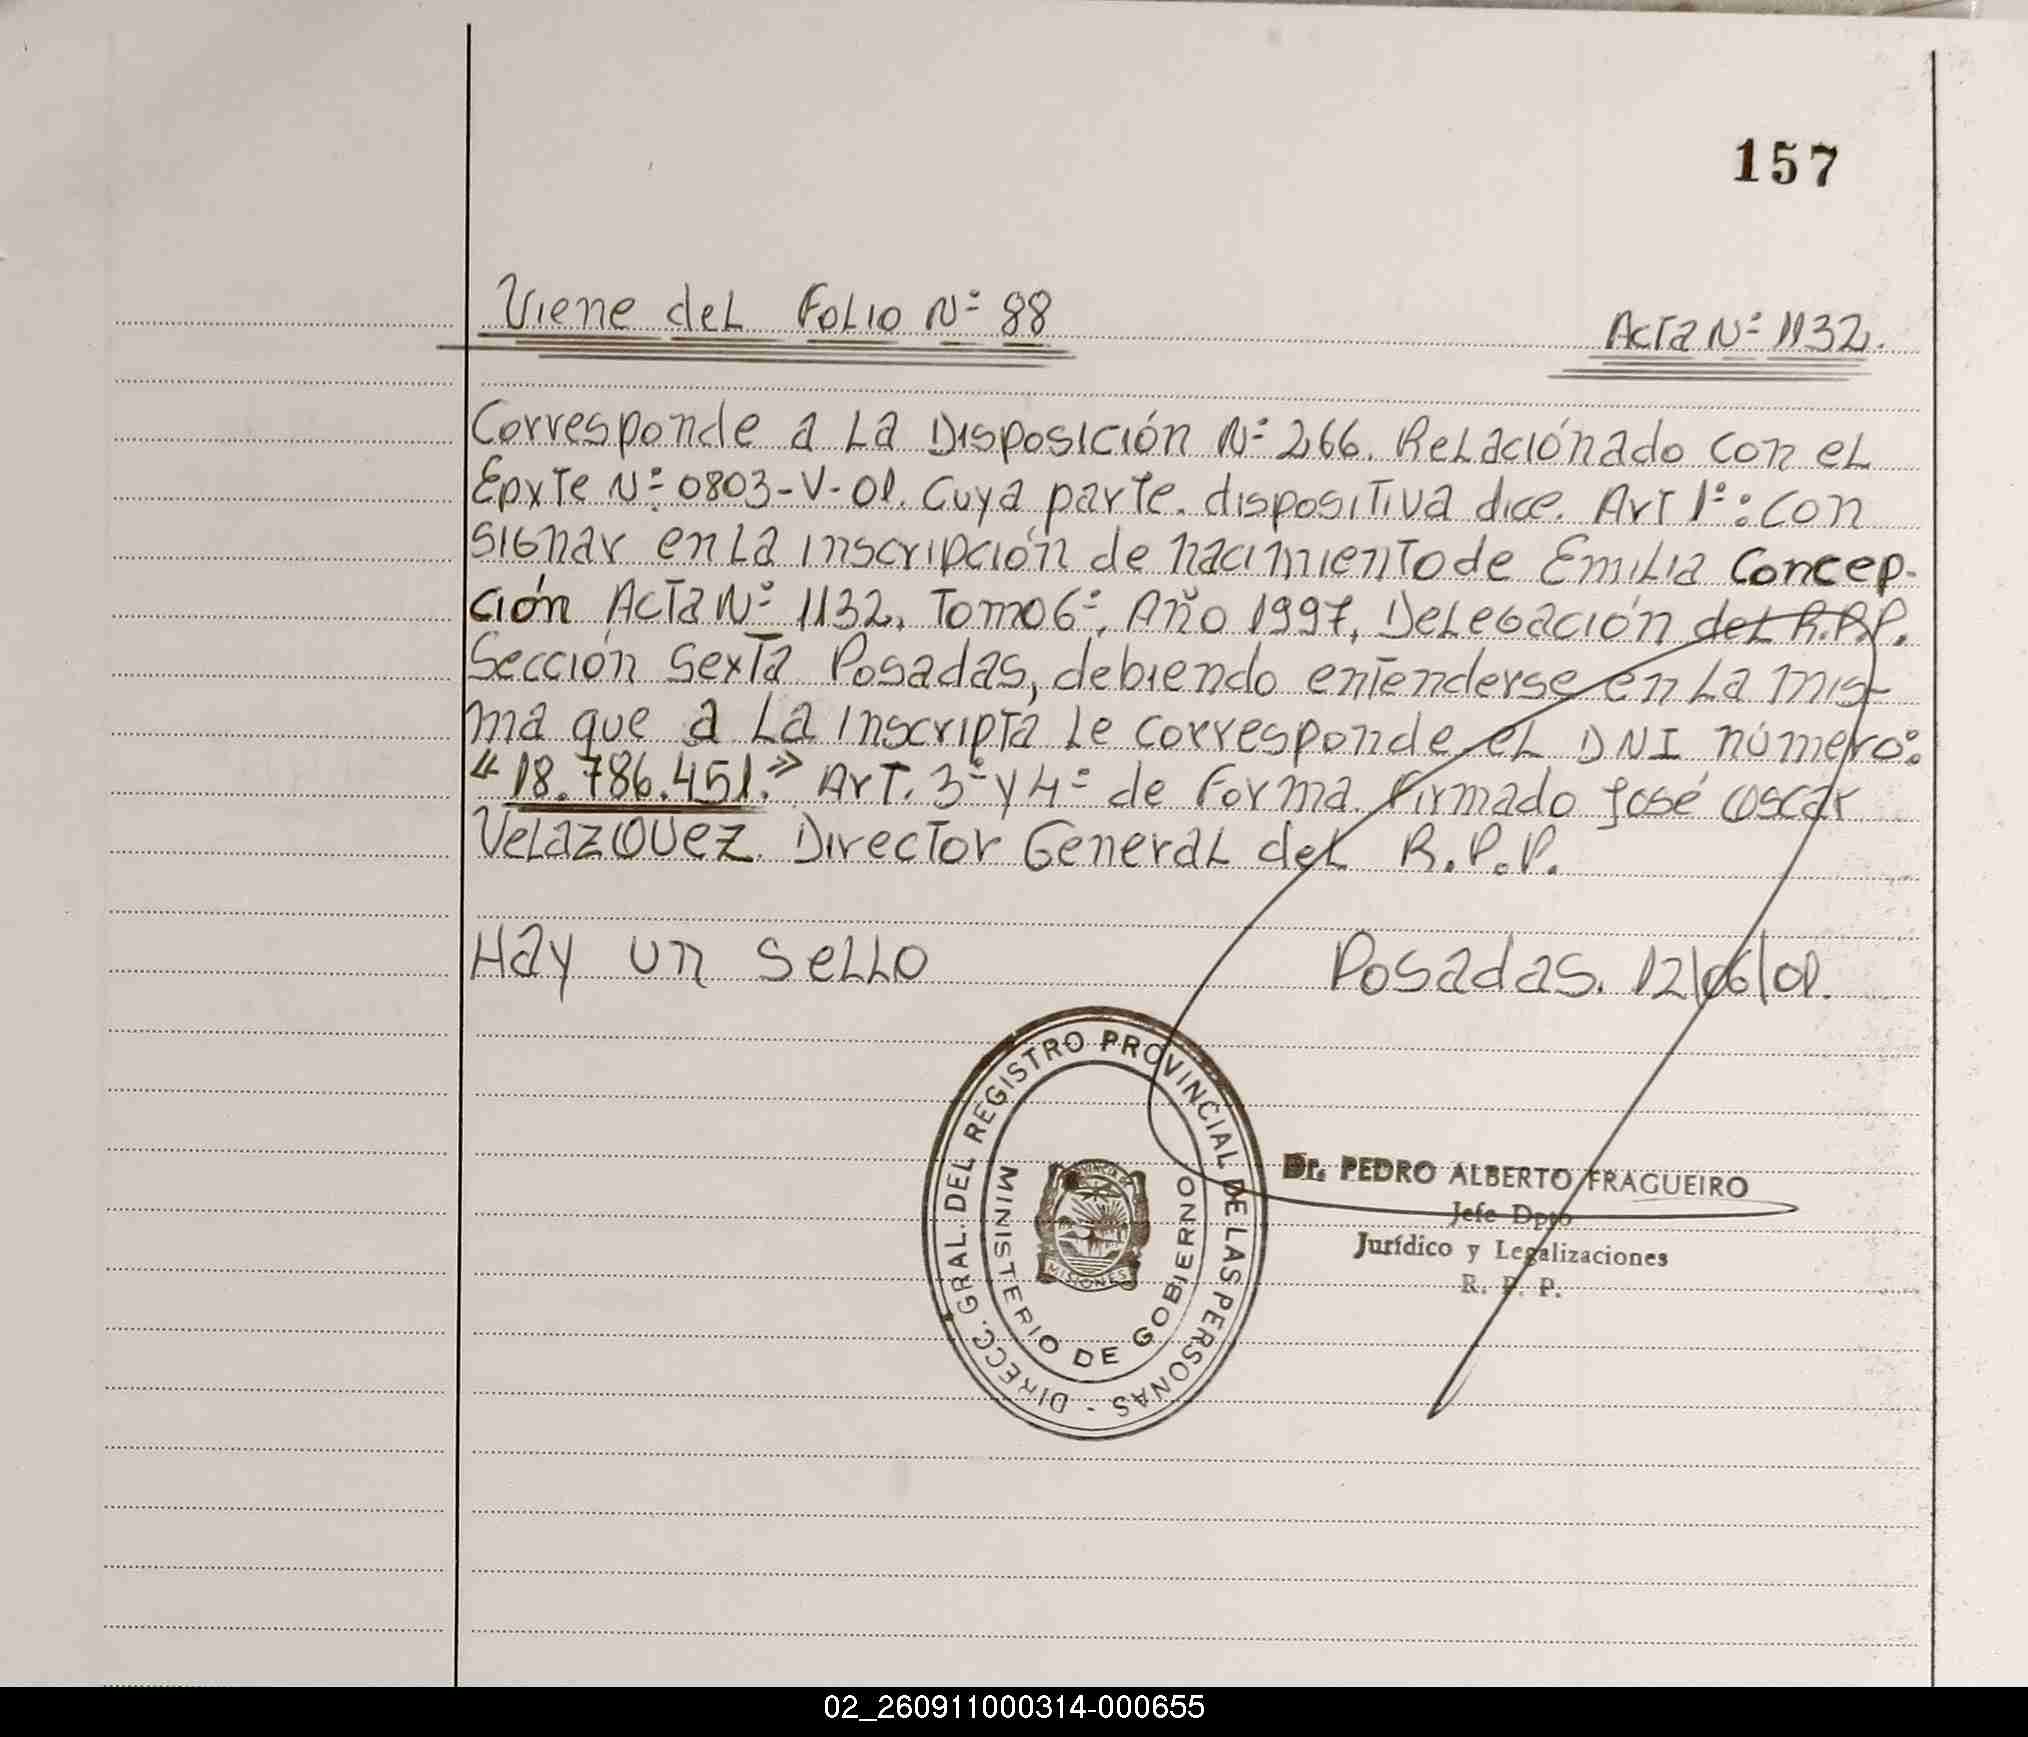 157
Viene del Folio Nº 88
Acta Nº 1132.
Corresponde a La Disposición Nº 266. Relaciónado con el
Epxte Nº 0803-V-01. Cuya parte. dispositiva dice. Art 1º: Con
signar en La inscripción de nacimiento de Emilia Concep-
ción Acta Nº 1132. Tomo 6º, Año 1997, Delegación del R.P.P.
Sección Sexta Posadas, debiendo entenderse en La mis-
ma que a La inscripta Le corresponde el DNI número:
"18.786.451." Art. 3º y 4º de Forma Firmado José Oscar
Velazquez. Director General del R.P.P.
Hay un sello
Posadas. 12/06/01.
DIRECC. GRAL. DEL REGISTRO PROVINCIAL DE LAS PERSONAS -
MINISTERIO DE GOBIERNO
MISIONES
Dr. PEDRO ALBERTO FRAGUEIRO
Jefe Dpto
Jurídico y Legalizaciones
R. P. P.
02_260911000314-000655